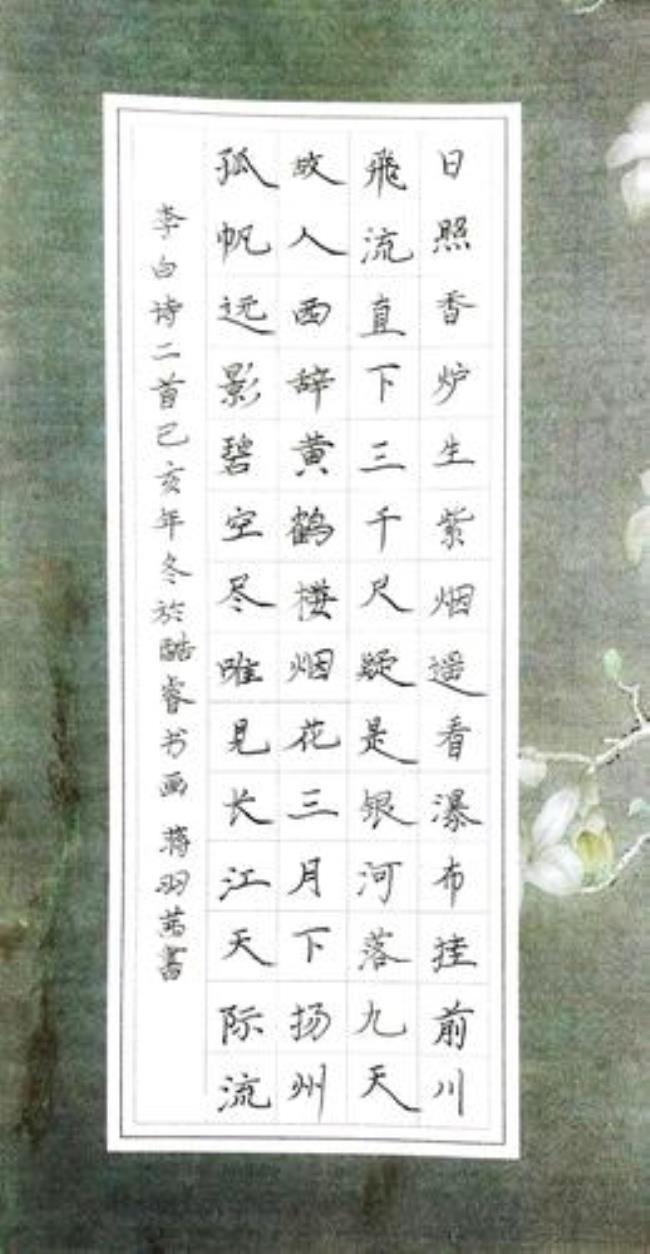 日照香炉生紫烟遥看瀑布挂前川
飛流直下三千尺疑是银河落九天
故人西辞黄鹤楼烟花三月下扬州
孤帆远影碧空尽唯见长江天际流
李白诗二首己亥年冬於酷睿书画 蒋羽茜書